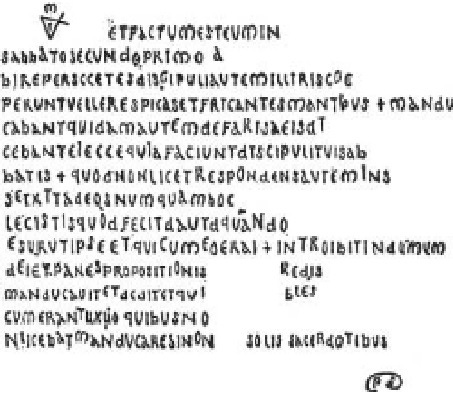 ETFACTUMESTCUMIN
SABBATOSECUNDOPRIMO A
BIREPERSCCETESDISCIPULIAUTEMILLITRISCOE
PERUNTVELLERESPICASETFRICANTESMANTBUS + MANDU
CABANTQUIDAMAUTEMDEFARISAEISDT
CEBANTEIECCEQUIAFACIUNTDTSCIPULITUISAB
BATIS + QUODNONLICETRESPONDENSAUTEMINS
SETXTTADEOSNUMQUAMHOC
LECISTISQUODFECITDAUTDQUANDO
ESURUTIPSEETQUICUMEOERAT + INTROIBITINDOMUM
DEIETPANESPROPOSITIONIS REDIS
MANDUCAUITETDEDITETQUI BLES
CUMERANTUXUO QUIBUSNO
NLICEBATMANDUCARESINON SOLIS SACERDOTIBUS